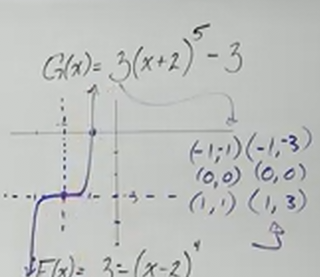 G(x)= 3(x+2)^5 - 3
(-1,-1) (-1,-3)
(0,0) (0,0)
(1,1) (1,3)
-3
F(x)= 3-(x-2)^4